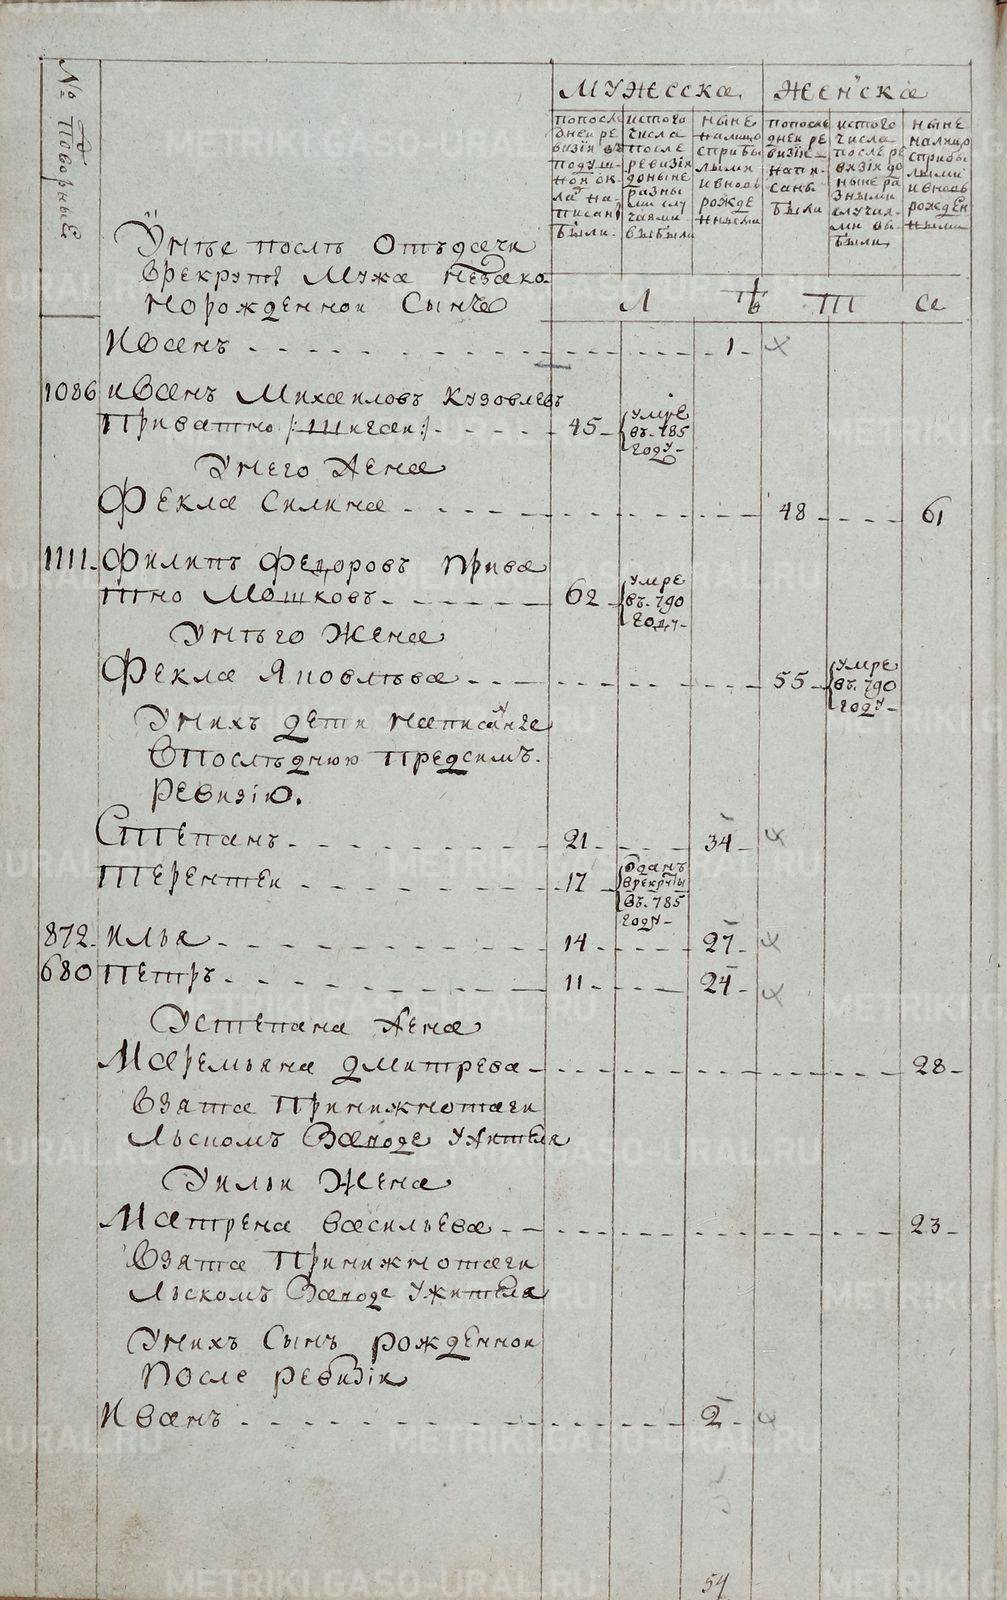 METRIKI.GASO-URAL.RU
№ Поворные
МУЖЕСКА
ЖЕНСКА
попосле
дней ре
визiи въ
подуш-
ной ок-
ла на-
писан
были
истого
числа
после
ревизiи
доныне
разны
ми слу
чаями
выбыли
ныне
налицо
сприбы
лыми
ивновь
рожде
нными
попосле
дней ре
визiи
напи-
саны
были
истого
числа
после ре
визiи до
ныне ра
зными
случая-
ми вы
были
ныне
налицо
сприбы
лыми
ивновь
рожден
ными
Л
Ѣ
Т
а
Унѣе послѣ Отъдачи
врекруты Мужа незако
норожденной Сынъ
Иванъ 1
1086 иванъ Михаиловъ Кузовлевъ
Приватно /:Шигаи:/ 45 умре
въ 785
году
Унего Жена
Фекла Силина 48 61
1111 Филипъ Федоровъ Прива
тно Мошковъ 62 умре
въ 790
году
Унѣго Жена
Фекла Яковлѣва 55 умре
въ 790
году
Унихъ дети написаные
Впослѣднюю предсимъ
Ревизiю.
Степанъ 21 34
Терентеи 17 Оданъ
врекруты
въ 785
году
872 илья 14 27
680 Петръ 11 24
Устепана Жена
Маремьяна дмитрева 28
Взята Принижнотаги
льскомъ Заводе Ужителя
Уильи Жена
Матрена васильева 23
Взята Принижнотаги
льскомъ Заводе Ужителя
Унихъ Сынъ рожденнои
После ревизiи
Иванъ 2
54